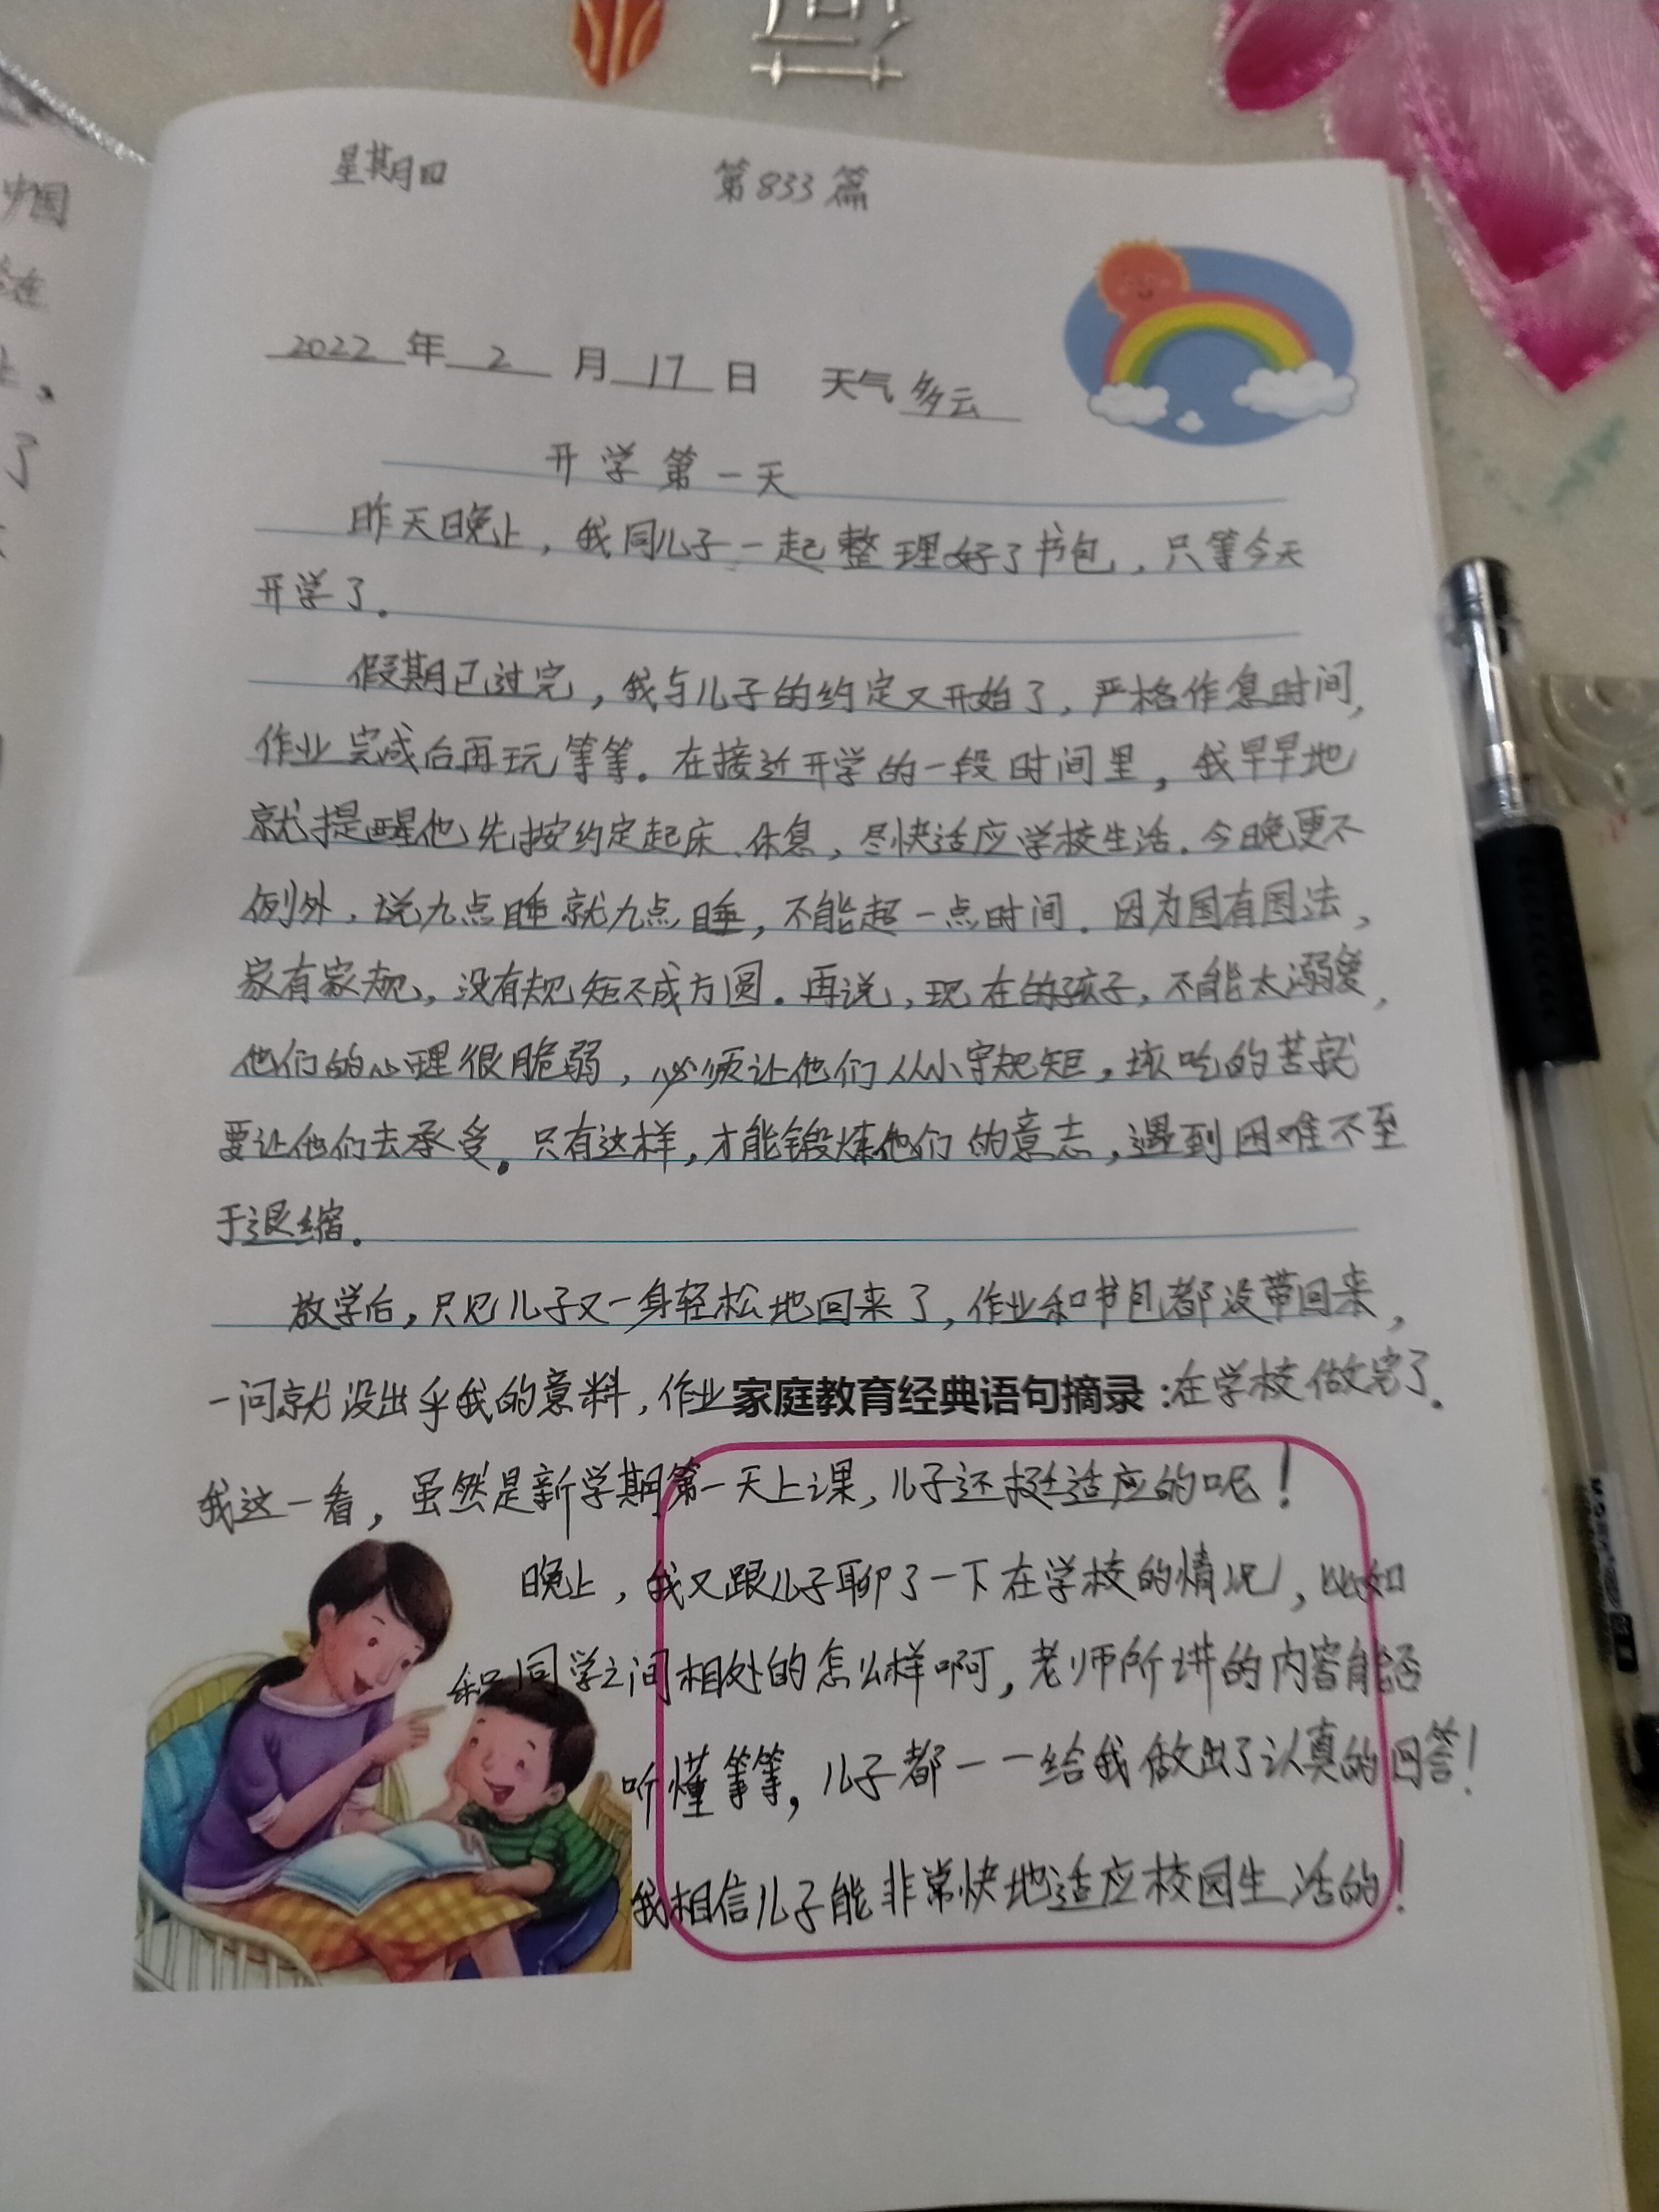 星期四 第833篇
2022年2月17日 天气多云
开学第一天
昨天晚上，我同儿子一起整理好了书包，只等今天
开学了。
假期已过完，我与儿子的约定又开始了，严格作息时间，
作业完成后再玩等等。在接近开学的一段时间里，我早早地
就提醒他先按约定起床、休息，尽快适应学校生活。今晚更不
例外，说九点睡就九点睡，不能超一点时间。因为国有国法，
家有家规，没有规矩不成方圆。再说，现在的孩子，不能太溺爱，
他们的心理很脆弱，必须让他们从小守规矩，该吃的苦就
要让他们去承受。只有这样，才能锻炼他们的意志，遇到困难不至
于退缩。
放学后，只见儿子又一身轻松地回来了，作业和书包都没带回来，
一问就没出乎我的意料，作业家庭教育经典语句摘录：在学校做完了。
我这一看，虽然是新学期第一天上课，儿子还挺适应的呢！
晚上，我又跟儿子聊了一下在学校的情况，比如
和同学之间相处的怎么样啊，老师所讲的内容能否
听懂等等，儿子都一一给我做出了认真的回答！
我相信儿子能非常快地适应校园生活的！
中国
了